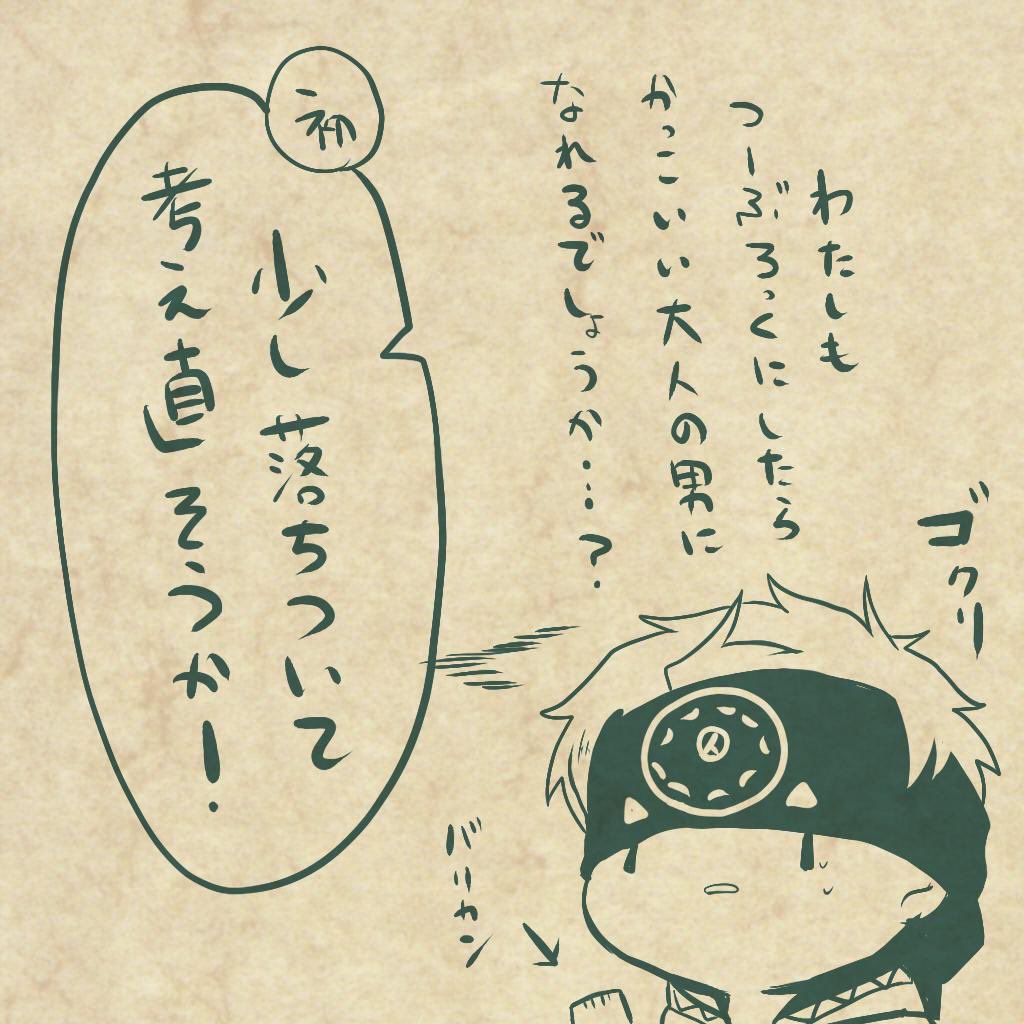 わたしも
つーぶろっくにしたら
かっこいい大人の男に
なれるでしょうか…?
ゴクリ
初
少し落ちついて
考え直そうかー!
バリカン